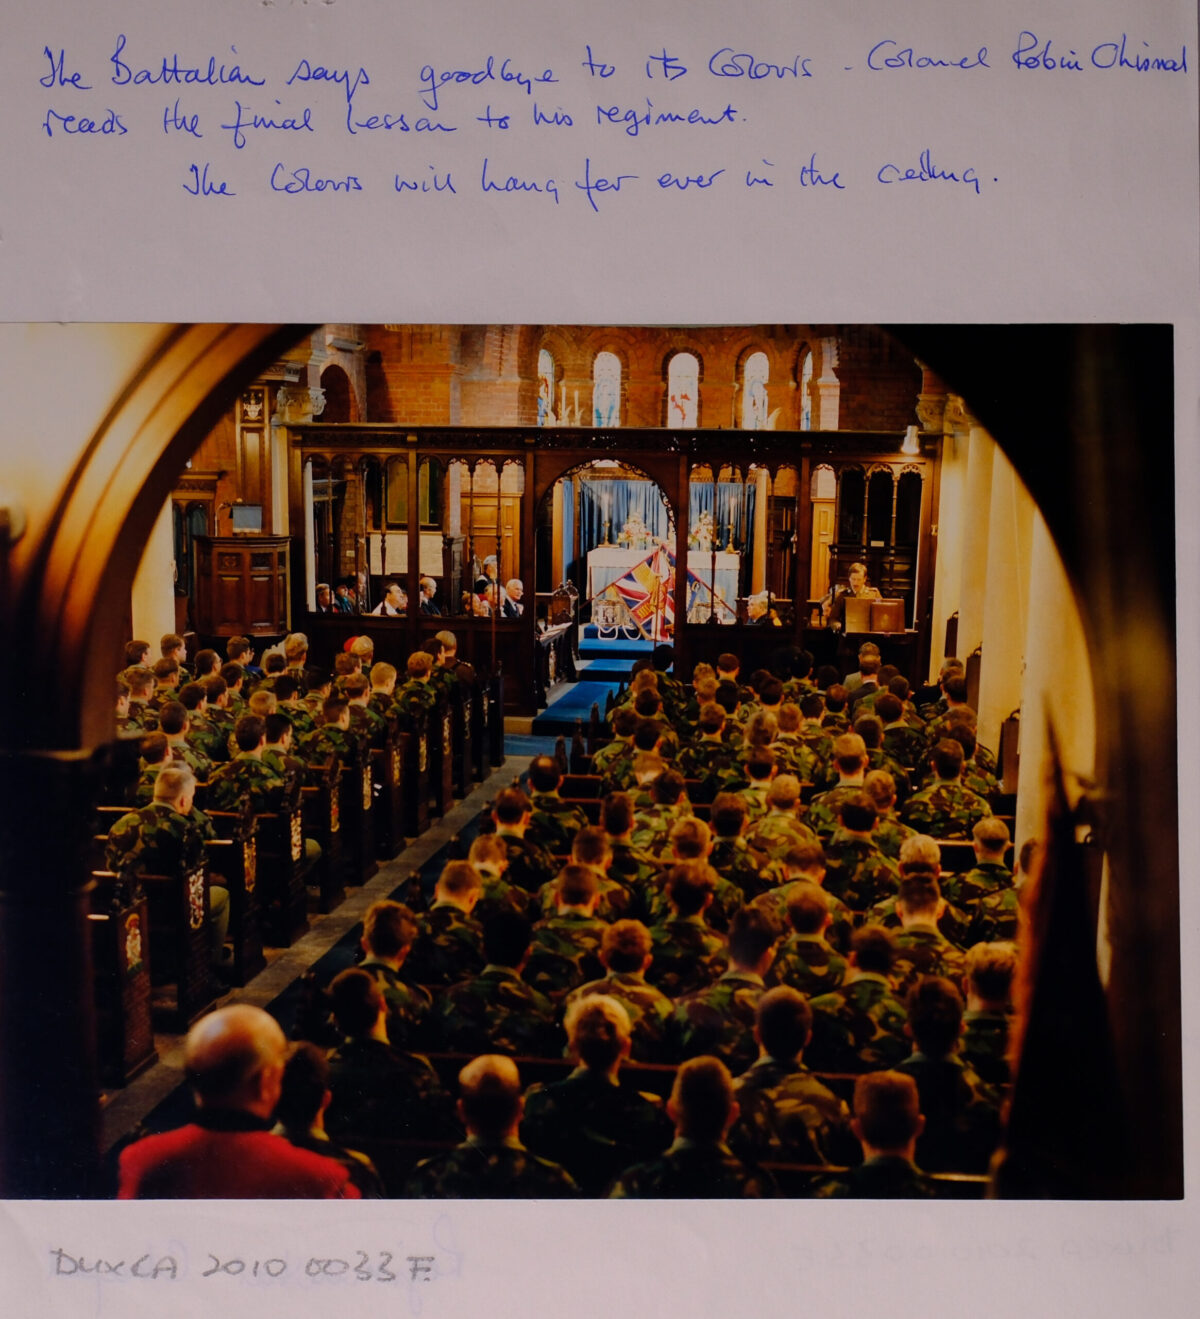 The Battalion says goodbye to its Colours - Colonel Robin Chisnall
reads the final lesson to his regiment.
The Colours will hang for ever in the ceiling.
DUXCA 2010 0033 F.